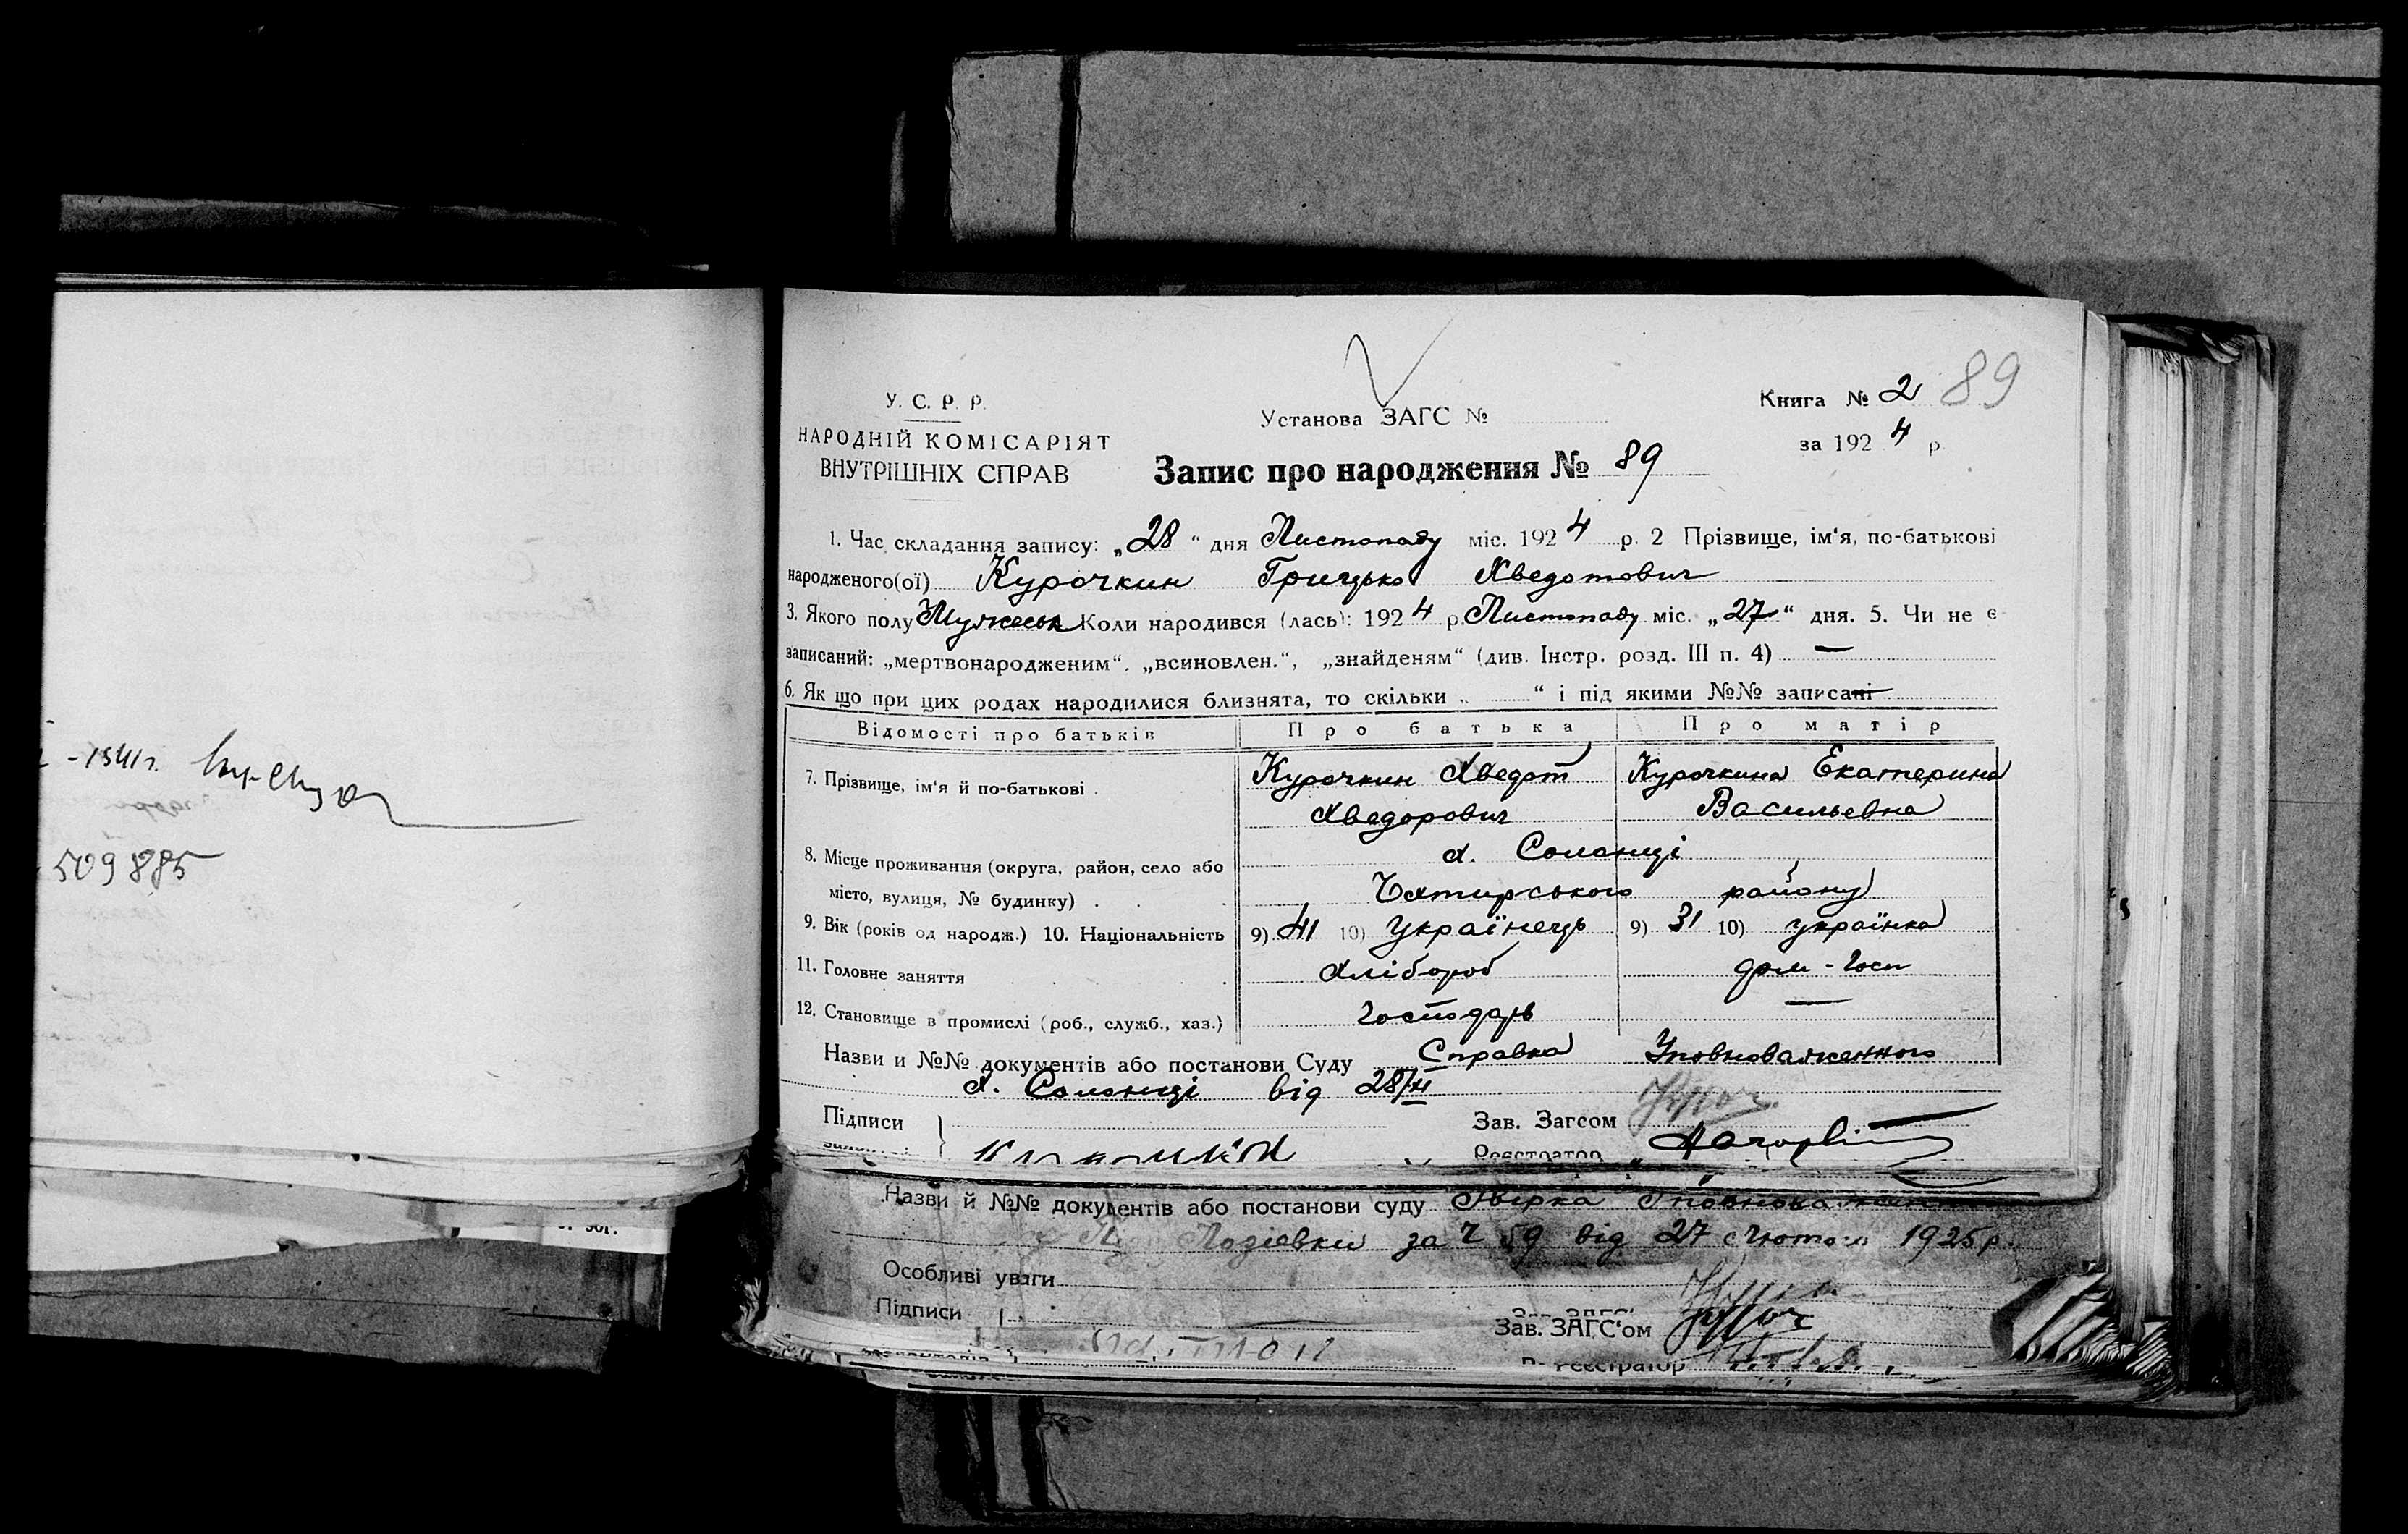 -1541г.
509885
У. С. Р. Р.
НАРОДНІЙ КОМІСАРІЯТ
ВНУТРІШНІХ СПРАВ
Установа ЗАГС №
Книга № 2 89
за 1924 р.
Запис про народження № 89
1. Час складання запису: „28“ дня Листопаду міс. 1924 р. 2 Прізвище, ім'я, по-батькові
народженого(ої) Курочкин Грицько Хведотович
3. Якого полу Мужеськ Коли народився (лась): 1924 р. Листопаду міс. „27“ дня. 5. Чи не є
записаний: „мертвонародженим“, „всиновлен.“, „знайденям“ (див. Інстр. розд. III п. 4) —
6. Як що при цих родах народилися близнята, то скільки „ “ і під якими №№ записані
Відомості про батьків Про батька Про матір
7. Прізвище, ім'я й по-батькові . Курочкин Хведот Курочкина Екатерина
Хведорович Васильевна
8. Місце проживання (округа, район, село або х. Солонці
місто, вулиця, № будинку) . . . району
9. Вік (років од народж.) 10. Національність 9) 41 10) Українець 9) 31 10) українка
11. Головне заняття . Хлібороб дом-госп
12. Становище в промислі (роб., служб., хаз.) Господарь —
Назви и №№ документів або постанови Суду Справка Уповноваженного
х. Солонці від 28/XI
Підписи Зав. Загсом
Реєстратор
Назви й №№ документів або постанови суду
Лозіевки за Ч 59 від 27 Лютого 1925 р.
Особливі уваги
Підписи
Зав. ЗАГС'ом
Реєстратор